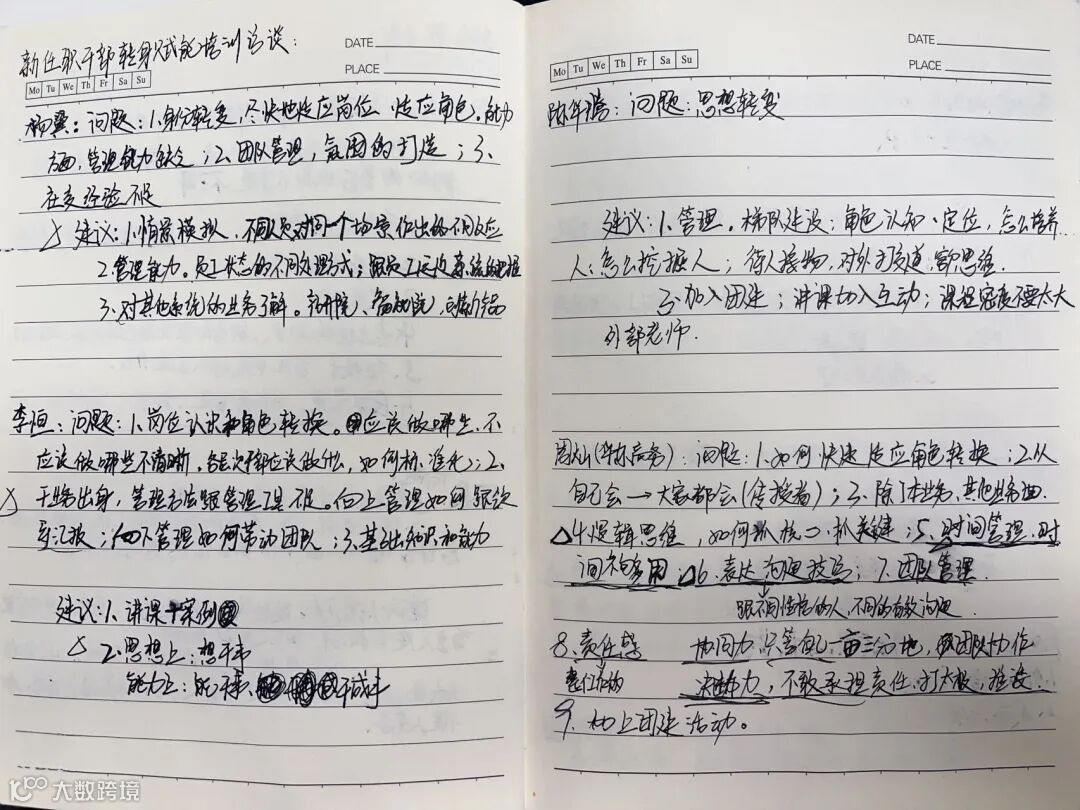 新任职干部转身赋能培训访谈:
DATE
PLACE
Mo Tu We Th Fr Sa Su
杨翼:问题:1、身份转变,尽快地适应岗位、适应角色。能力
方面,管理能力缺乏;2、团队管理,氛围的打造;3、
社交经验不足
△建议:1、情景模拟、不同人员对同一个场景作出的不同反应
2、管理能力。员工状态的不同处理方式;跟员工
3、对其他系统的业务了解。
李恒:问题:1、岗位认识和角色转换。应该做哪些、不
应该做哪些不清晰。各层次干部应该做什么,如何标准化;2、
干业务出身,管理方法跟管理工具不足。向上管理如何跟领
导汇报;向下管理如何带动团队;3、基础知识和能力
建议:1、讲课+案例
△ 2、思想上:想干事
能力上:能干事、干成事
DATE
PLACE
Mo Tu We Th Fr Sa Su
陈华瑞:问题:思想转变
建议:1、管理。梯队建设;角色认知、定位,怎么培养
人;怎么挖掘人;待人接物,对外打交道;思维.
2、加入团建;讲课加入互动;课程密度不要太大
外部老师.
问题:1、如何快速适应角色转换;2、从
自己会→大家都会(传授者);3、除了本业务,其他业务
△4、逻辑思维,如何抓核心、抓关键;5、时间管理、时
间不够用;△6、表达沟通技巧;7、团队管理.
跟不同性格的人,不同的有效沟通
8、责任感 协同力 只管自己一亩三分地,团队协作
责任 决断力,不敢承担责任、打太极、推诿.
9、加上团建活动。
大数跨境